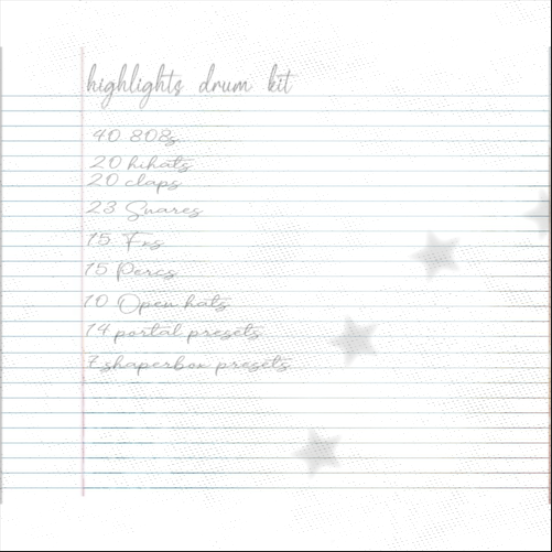 highlights drum kit
40 808s
20 hihats
20 claps
23 Snares
15 Fxs
15 Percs
10 Open hats
14 portal presets
7 shaperbox presets